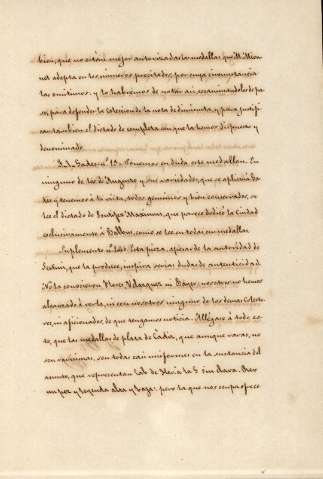 bien, que no están mejor autorizadas las medallas que Mr. Mion-
net adopta en los números precitados, por cuya circunstancia
las omitimos: y lo habremos de notar así, encaminándole de pa-
so, para defender la coleccion de la nota de diminuta, y para justifi-
car tambien el dictado de completa con que la hemos dispuesto y
denominado.
Ponemos en duda este medallon. En
ninguno de los de Augusto y sus variedades, que se aplican á Ga-
des, y tenemos á la vista, todos genuinos y bien conservados, se
lee el dictado de Pontifex Maximus, que parece dedicó la ciudad
exclusivamente á Balbo, como se lee en todas sus medallas.
Suplemento Esta pieza, apesar de la autoridad de
Sestini, que la produce, inspira serias dudas de autenticidad.
No la conocieron Florez Velazquez ni Bayer: nosotros no hemos
alcanzado á verla, ni creo nosotros ninguno de los demas colecto-
res, ni aficionados, de que tengamos noticia. Allégase á todo es-
to, que las medallas de plata de Cadiz, que aunque raras, no
son rarisimas, son todas casi uniformes en la sustancia del
asunto, que representan Cab. de Herc. á la
un pez y leyenda por la que nos ocupa ofrece